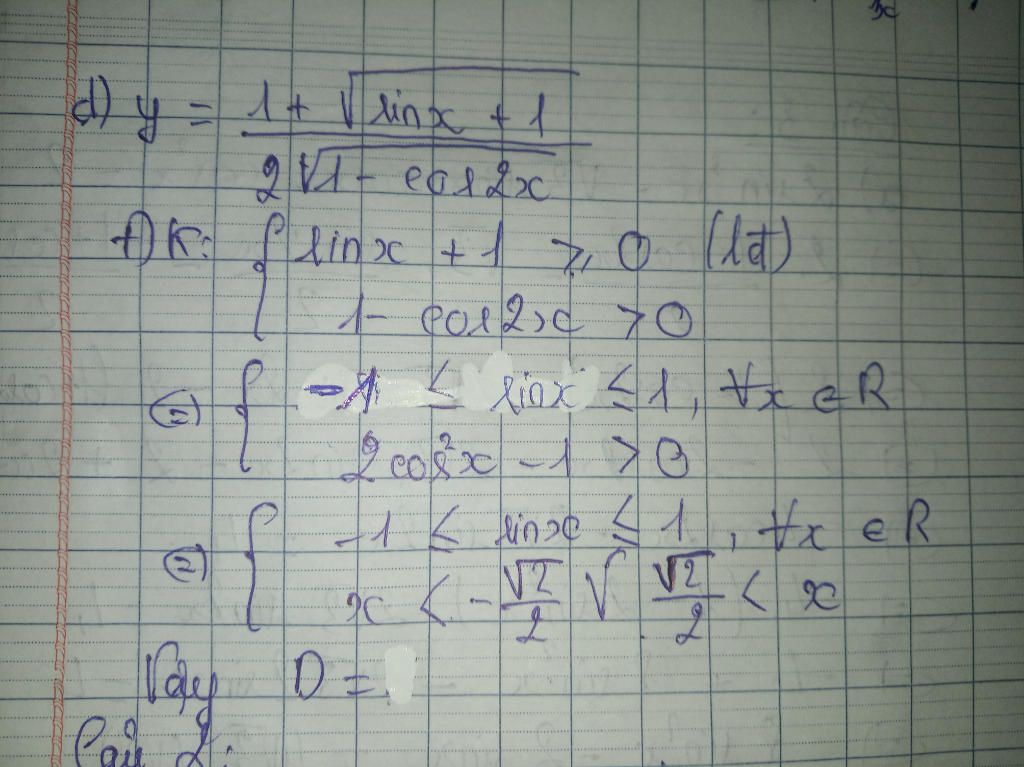 d) y = (1 + √(sinx + 1)) / (2√(1 - cos2x))
ĐK: { sinx + 1 ≥ 0 (lđ)
1 - cos2x > 0
⇔ { -1 ≤ sinx ≤ 1, ∀x ∈ R
2cos²x - 1 > 0
⇔ { -1 ≤ sinx ≤ 1, ∀x ∈ R
x < -√2/2 ∨ √2/2 < x
Vậy D =
Bài 2: